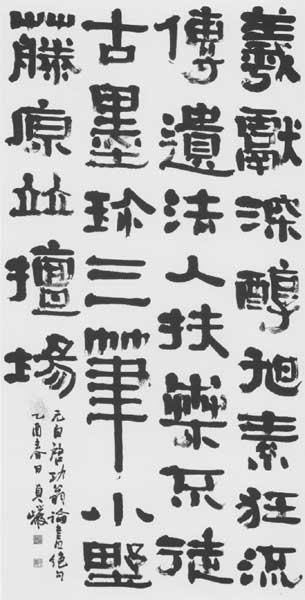 羲獻深醇旭素狂流
傳遺法入扶桒不徒
古墨珍三筆小野
藤原竝擅場
元白啓功翁論書絕句
乙酉春日貞巖